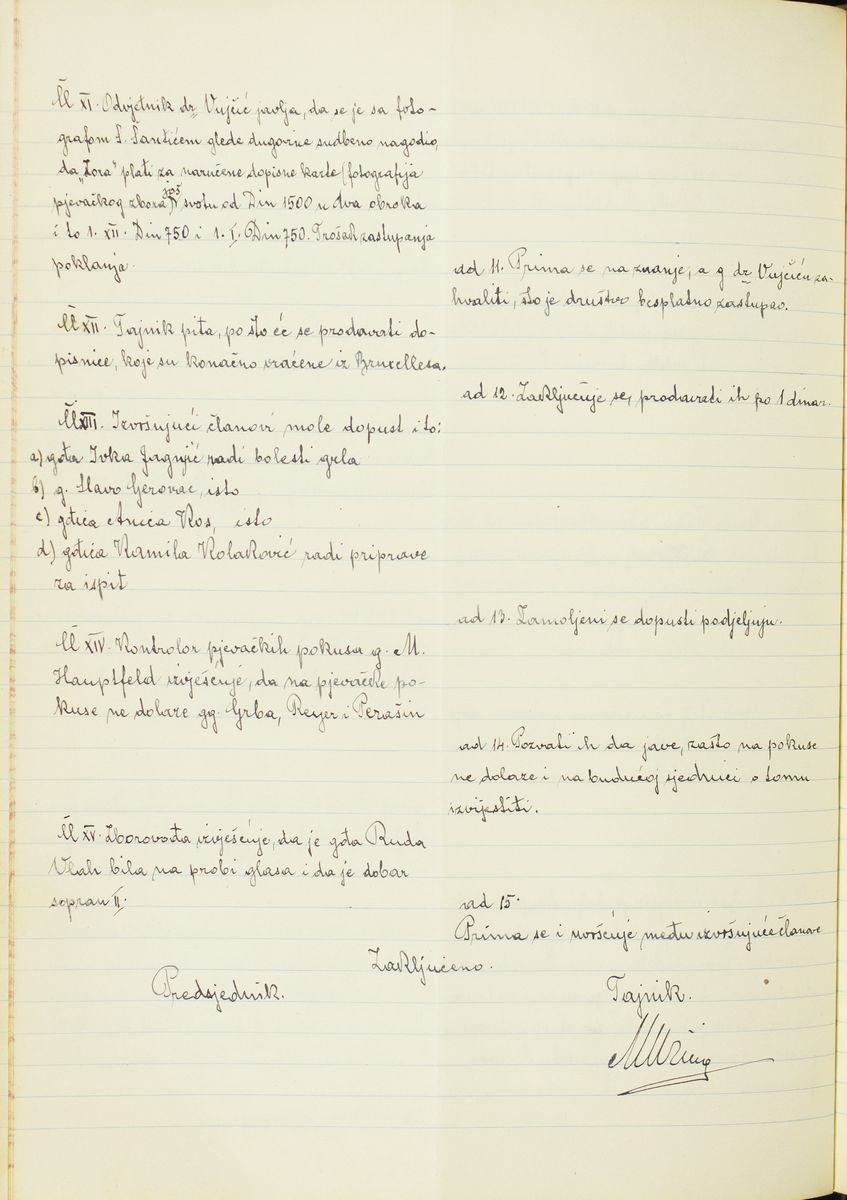 Čl XI. Odvjetnik dr Vujčić javlja, da se je sa foto-
grafom S. Šantićem glede dugovine sudbeno nagodio,
da „Zora" plati za naručene dopisne karte (fotografija
pjevačkog zbora) još svotu od Din 1500 u dva obroka
i to 1. XII. Din 750 i 1. I. Din 750. Trošak zastupanja
poklanja.
ad 11. Prima se na znanje, a g dr Vujčiću za-
hvaliti, što je društvo besplatno zastupao.
Čl XII. Tajnik pita, po što će se prodavati do-
pisnice, koje su konačno vraćene iz Bruxellesa.
ad 12. Zaključuje se, prodavati ih po 1 dinar.
Čl XIII. Izvršujući članovi mole dopust i to:
a) gđa Ivka Jagnjić radi bolesti grla
b) g. Slavo Gerovac, isto
c) gđica Anića Kos, isto
d) gđica Kamila Kolaković radi priprave
za ispit
ad 13. Zamoljeni se dopusti podjeljuju.
Čl XIV. Kontrolor pjevačkih pokusa g. M.
Hauptfeld izvješćuje, da na pjevačke po-
kuse ne dolaze gg. Grba, Reyer i Perašin
ad 14. Pozvati ih da jave, zašto na pokuse
ne dolaze i na budućoj sjednici o tomu
izvijestiti.
Čl XV. Zborovođa izvješćuje, da je gđa Ruda
Vlah bila na probi glasa i da je dobar
sopran II.
ad 15.
Prima se i uvršćuje među izvršujuće članove
Zaključeno.
Predsjednik.
Tajnik.